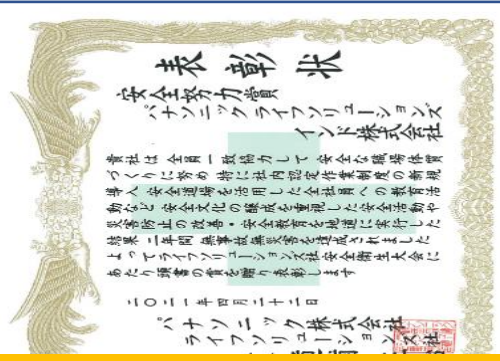 表彰状
安全努力賞
パナソニック ライフソリューションズ
インド株式会社
貴社は全員一致協力して安全な職場体質
づくりに努め特に社内認定作業制度の新規
導入 安全道場を活用した全社員への教育活
動など 安全文化の醸成を重視した安全活動や
災害防止の改善・安全教育を地道に実行した
結果 二年間 無事故無災害を達成されました
よってライフソリューションズ社安全衛生大会に
あたり頭書の賞を贈り表彰します
二〇二一年四月二十二日
パナソニック株式会社
ライフソリューションズ社